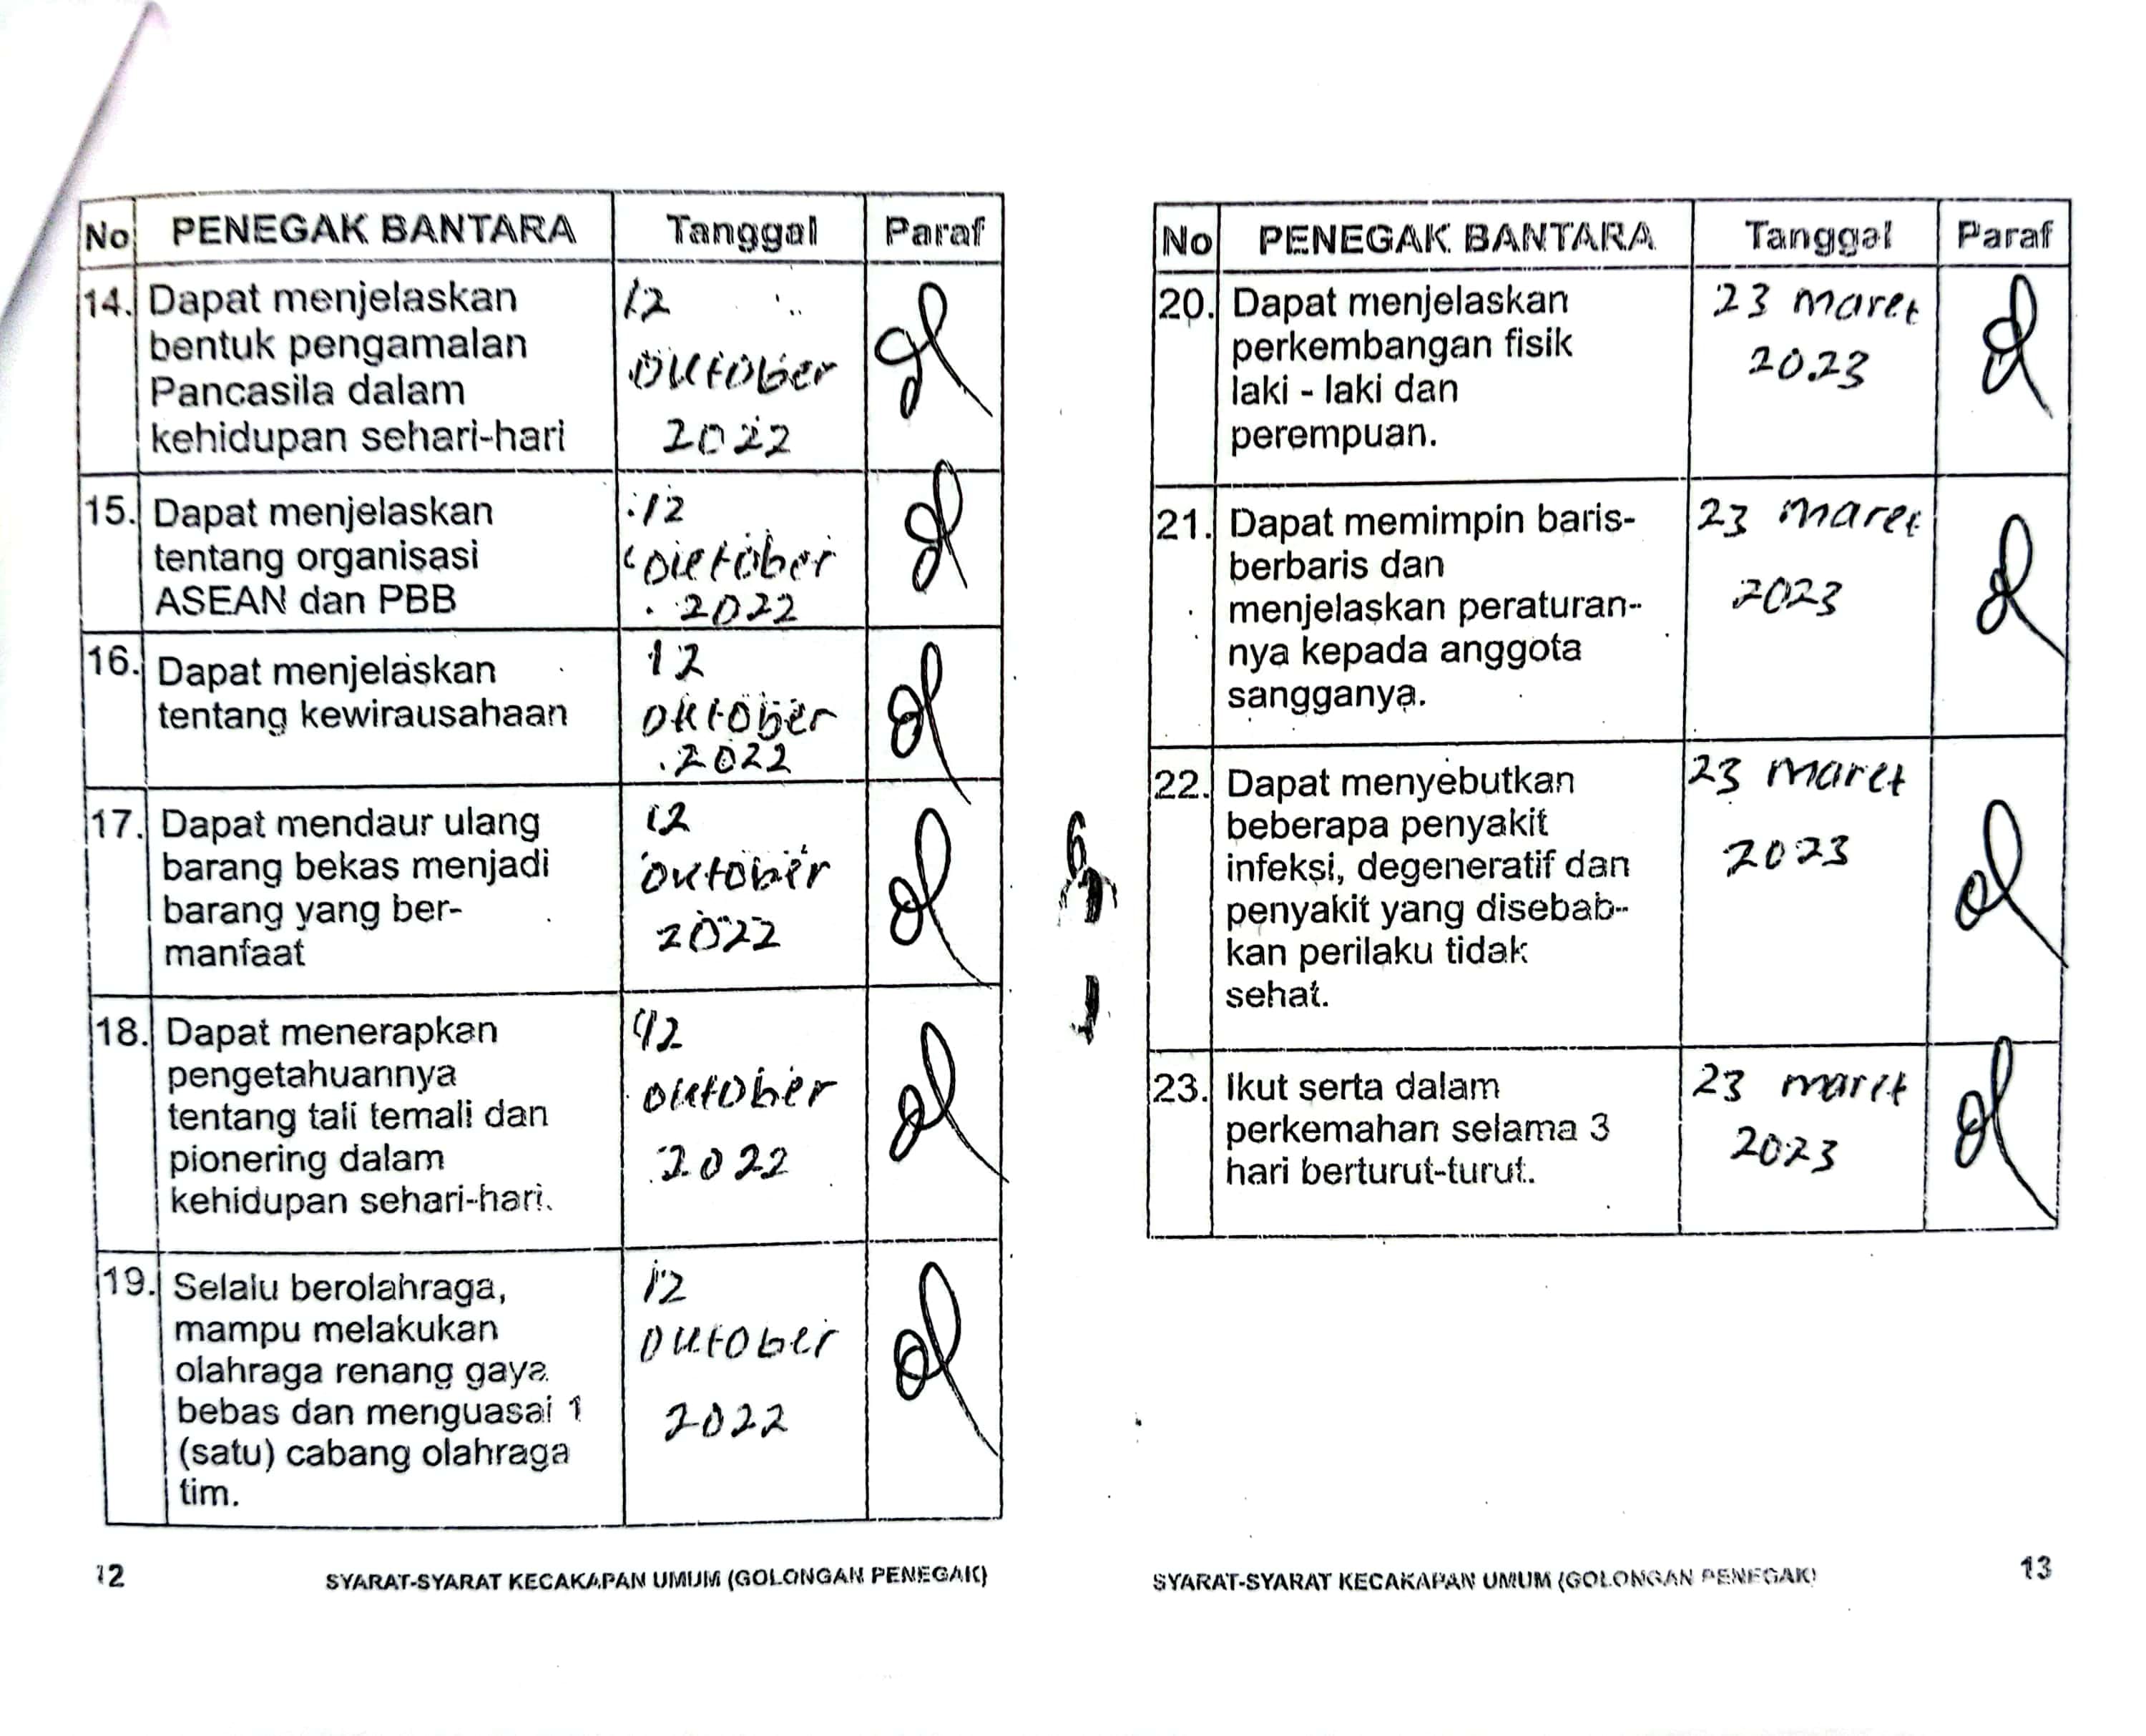 No PENEGAK BANTARA Tanggal Paraf
14. Dapat menjelaskan
bentuk pengamalan
Pancasila dalam
kehidupan sehari-hari
12
Oktober
2022
15. Dapat menjelaskan
tentang organisasi
ASEAN dan PBB
12
Oktober
2022
16. Dapat menjelaskan
tentang kewirausahaan
12
Oktober
2022
17. Dapat mendaur ulang
barang bekas menjadi
barang yang ber-
manfaat
12
Oktober
2022
18. Dapat menerapkan
pengetahuannya
tentang tali temali dan
pionering dalam
kehidupan sehari-hari.
12
Oktober
2022
19. Selalu berolahraga,
mampu melakukan
olahraga renang gaya
bebas dan menguasai 1
(satu) cabang olahraga
tim.
12
Oktober
2022
12 SYARAT-SYARAT KECAKAPAN UMUM (GOLONGAN PENEGAK)
No PENEGAK BANTARA Tanggal Paraf
20. Dapat menjelaskan
perkembangan fisik
laki - laki dan
perempuan.
23 maret
2023
21. Dapat memimpin baris-
berbaris dan
menjelaskan peraturan-
nya kepada anggota
sangganya.
23 maret
2023
22. Dapat menyebutkan
beberapa penyakit
infeksi, degeneratif dan
penyakit yang disebab-
kan perilaku tidak
sehat.
23 maret
2023
23. Ikut serta dalam
perkemahan selama 3
hari berturut-turut.
23 maret
2023
SYARAT-SYARAT KECAKAPAN UMUM (GOLONGAN PENEGAK) 13